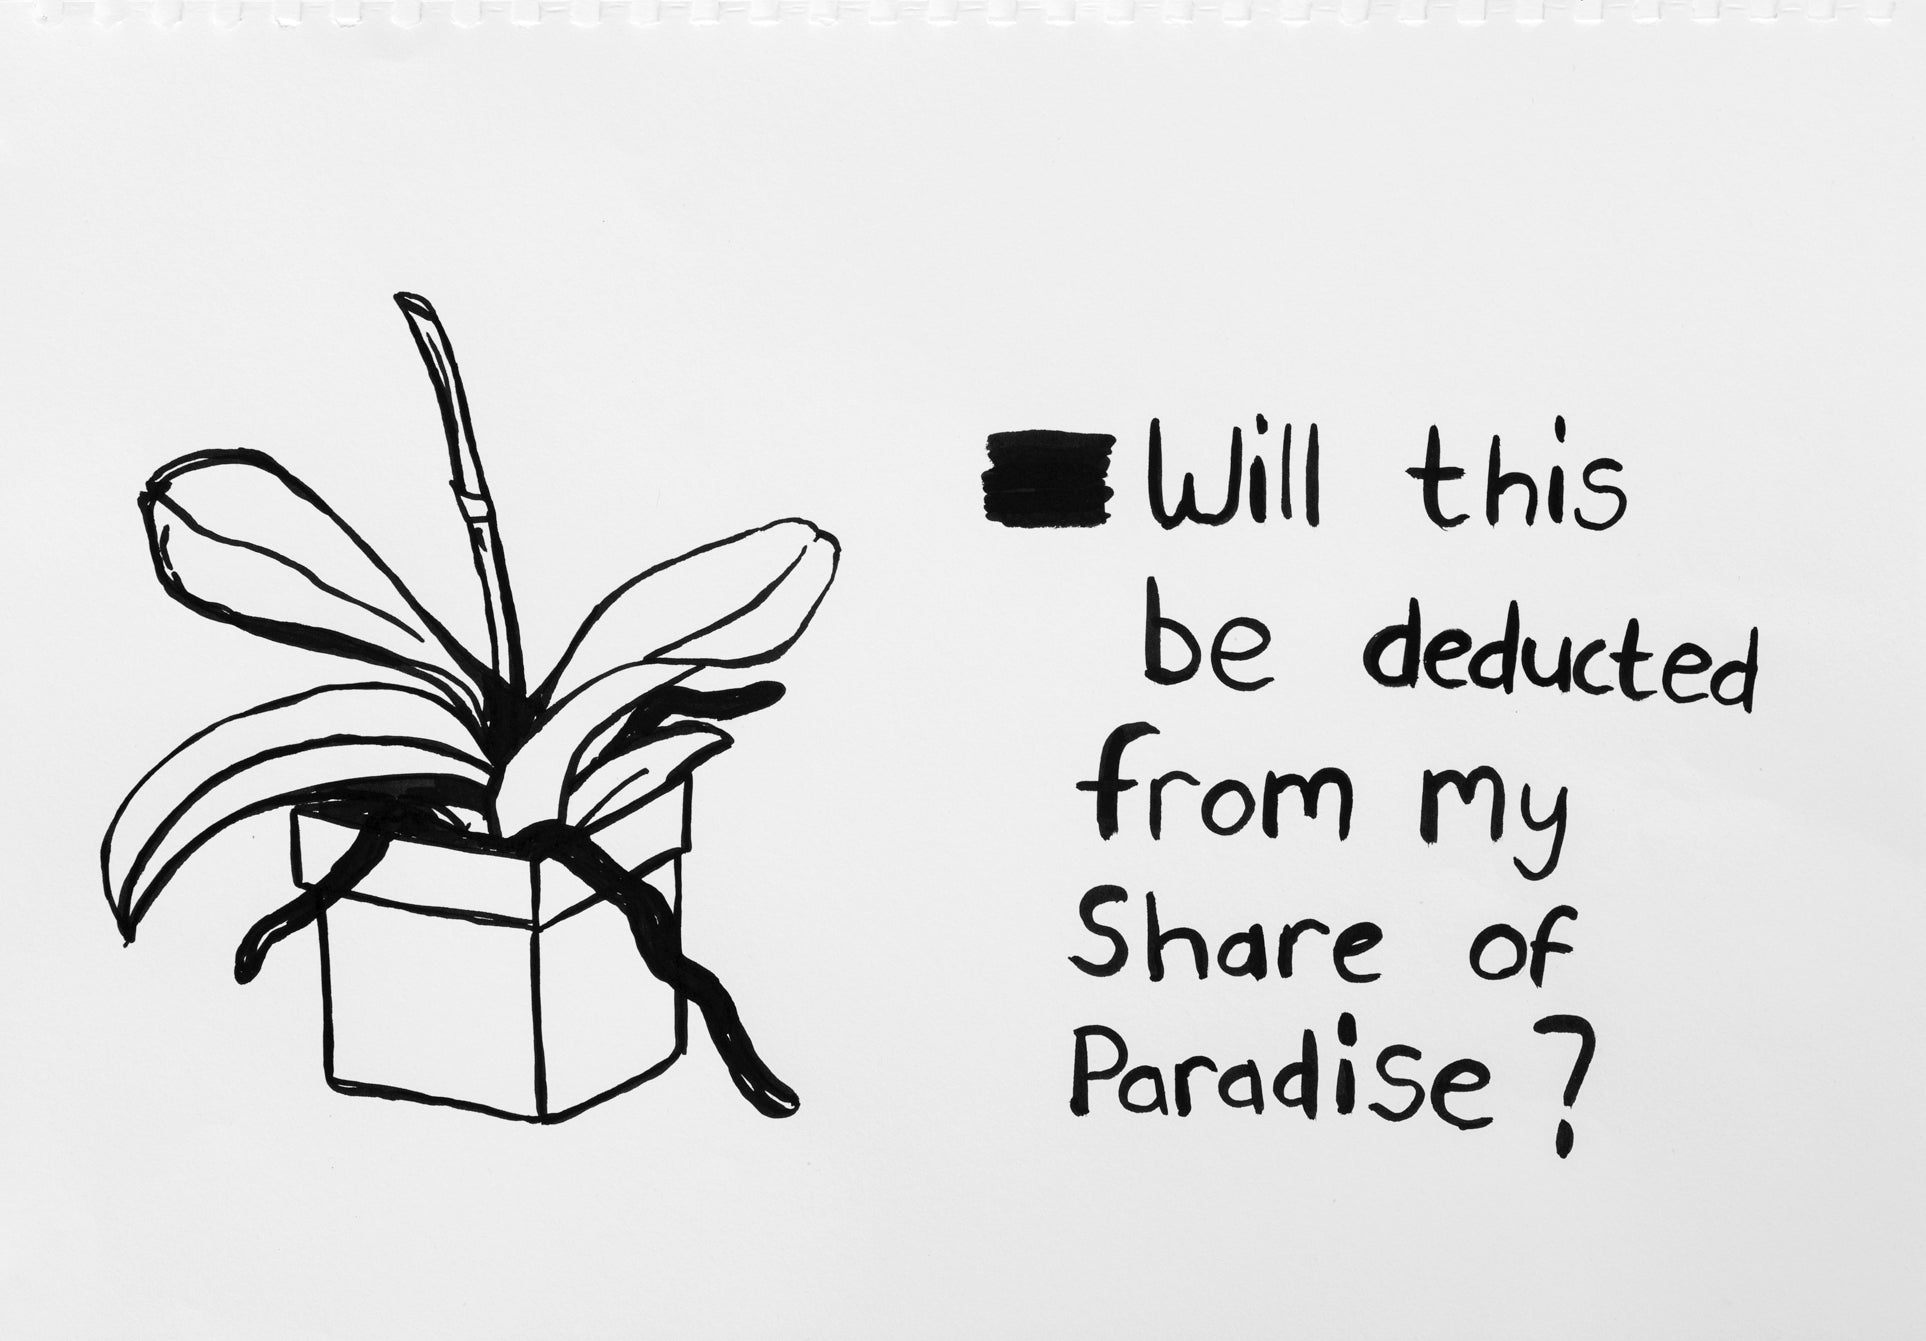 Will this
be deducted
from my
Share of
Paradise?